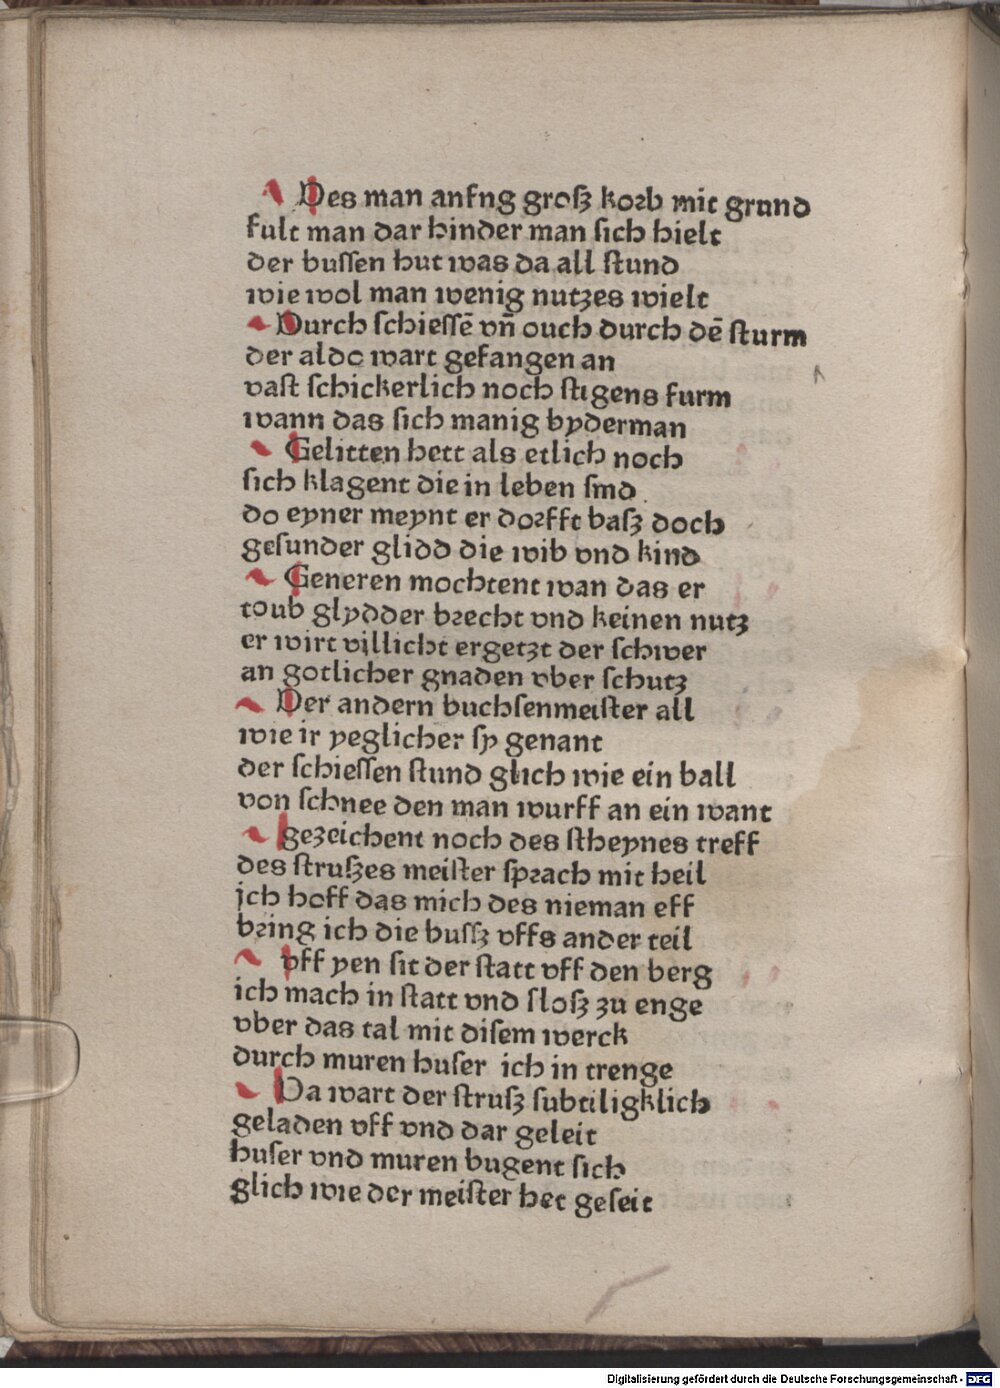 Des man anfng groſz korb mit grund
fult man dar hinder man ſich hielt
der buſſen hut was da all ſtund
wie wol man wenig nutzes wielt
Durch ſchieſſē vn̄ ouch durch dē ſturm
der aldo wart gefangen an
vaſt ſchickerlich noch ſtigens furm
wann das ſich manig byderman
Gelitten hett als etlich noch
ſich klagent die in leben ſind
do eyner meynt er dorfft baſz doch
geſunder glidd die wib vnd kind
Generen mochtent wan das er
toub glydder brecht vnd keinen nutz
er wirt villicht ergetzt der ſchwer
an gotlicher gnaden vber ſchutz
Der andern buchſenmeiſter all
wie ir yeglicher ſy genant
der ſchieſſen ſtund glich wie ein ball
von ſchnee den man wurff an ein want
gezeichent noch des ſtheynes treff
des ſtruſzes meiſter ſprach mit heil
ich hoff das mich des nieman eff
bring ich die buſſz vffs ander teil
vff yen ſit der ſtatt vff den berg
ich mach in ſtatt vnd ſloſz zu enge
vber das tal mit diſem werck
durch muren huſer ich in trenge
Da wart der ſtruſz ſubtiligklich
geladen vff vnd dar geleit
huſer vnd muren bugent ſich
glich wie der meiſter het geſeit
Digitalisierung gefördert durch die Deutsche Forschungsgemeinschaft - DFG